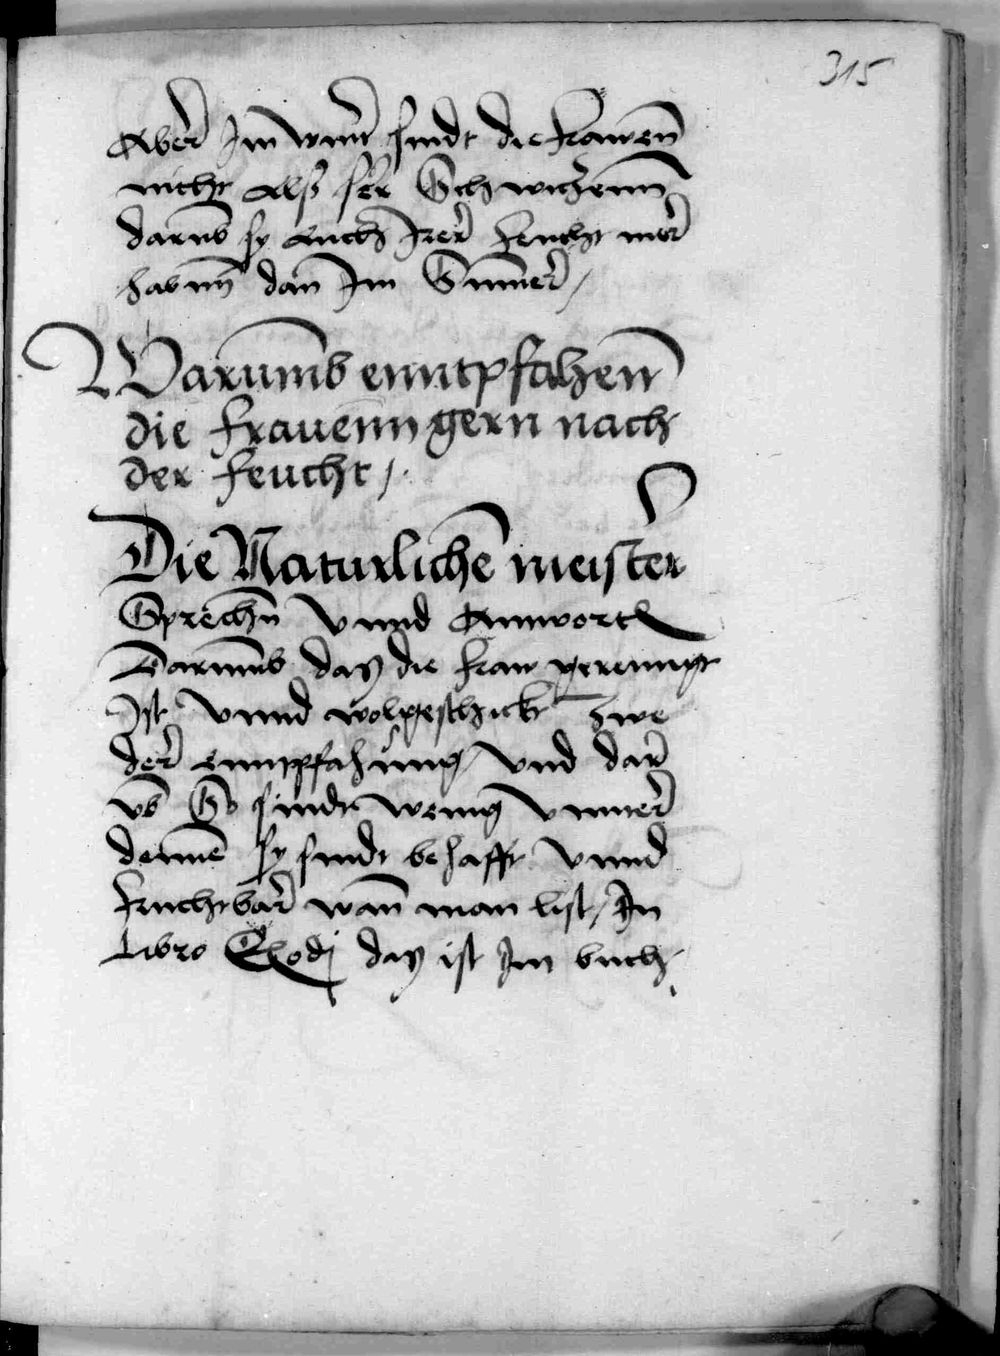 315
Aber Im wintter sindt die frawenn
nicht Alß ser Schwiczennn
darumb sy Auch Irer feucht mer
habenn dann Im Summer /
Warumb enntpfahenn
die frauenn gern nach
der feucht /.
Die Naturlichen meister
Sprechen Vnnd Anntwortten
Darumb das die fraw gereinigt
Ist Vnnd wolgeschickt zwe
der enntpfahung / vnd dar
vb So sindt wenig Vnnter
dennen sy sindt behafft Vnnd
fruchtbar wann man list / In
Libro Exodj das ist Im buch